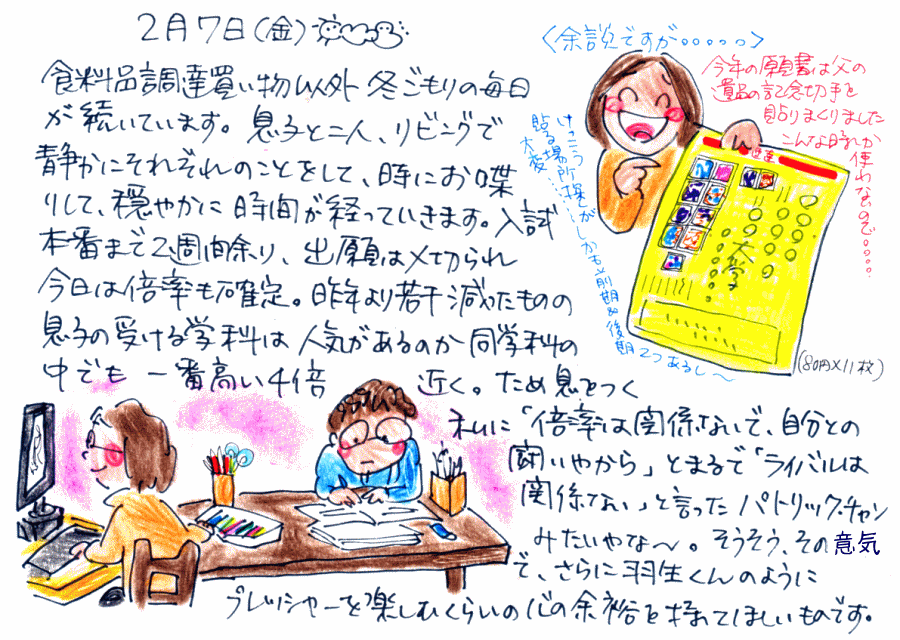 2月7日(金)
食料品調達買い物以外 冬ごもりの毎日
が続いています。息子と二人、リビングで
静かにそれぞれのことをして、時にお喋
りして、穏やかに時間が経っていきます。入試
本番まで2週間余り、出願は〆切られ
今日は倍率も確定。昨年より若干減ったものの
息子の受ける学科は人気があるのか同学科の
中でも 一番高い4倍 近く。ため息をつく
私に「倍率は関係ないで、自分との
闘いやから」とまるで「ライバルは
関係ない」と言ったパトリック・チャン
みたいやな〜。そうそう、その意気
で、さらに羽生くんのように
プレッシャーを楽しむくらいの心の余裕を持ってほしいものです。
〈余談ですが。。。。。。〉
今年の願書は父の
遺品の記念切手を
貼りまくりました
こんな時しか
使わないので。。。。
けっこう
貼る場所探しが
大変…しかも前期&後期2つあるし〜
速達
大学
(80円×11枚)